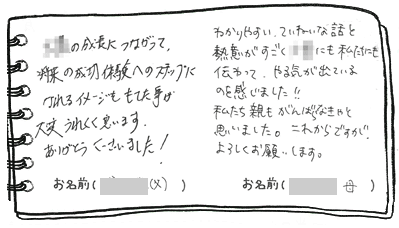 の成長につながって、
将来の成功体験へのステップに
なれるイメージももてた事が
大変うれしく思います。
ありがとうございました!
お名前( (父) )
わかりやすい、ていねいな話と
熱意がすごく にも私たちにも
伝わって、やる気が出ている
のを感じました!!
私たち親もがんばらなきゃと
思いました。これからですが、
よろしくお願いします。
お名前( 母 )